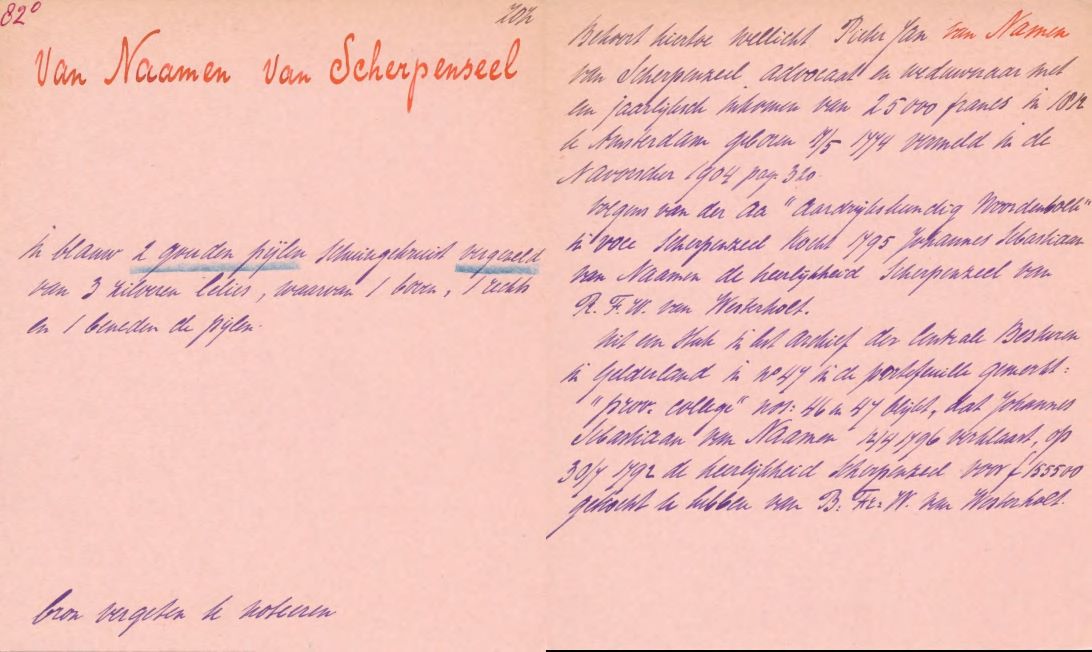 82°
202
Van Naamen van Scherpenseel
in blauw 2 gouden pijlen schuingekruist vergezeld
van 3 zilveren lelies, waarvan 1 boven, 1 rechts
en 1 beneden de pijlen.
bron vergeten te noteeren
Behoort hiertoe wellicht Pieter Jan van Namen
van Scherpenzeel, advocaat en weduwnaar met
een jaarlijksch inkomen van 25000 francs in
te Amsterdam geboren 1774 vermeld in de
Navorscher 1904 pag. 320.
Volgens van der Aa "Aardrijkskundig Woordenboek"
in voce Scherpenzeel kocht 1795 Johannes Sebastiaan
van Naamen de heerlijkheid Scherpenzeel van
R. F. W. van Westerholt.
Uit een stuk in het archief der Centrale Besturen
in Gelderland in no 47 in de portefeuille gemerkt:
"prov. college" nos: 46 en 47 blijkt, dat Johannes
Sebastiaan van Naamen 12/4 1796 verklaart, op
30/7 1792 de heerlijkheid Scherpenzeel voor f 155500
gekocht te hebben van B. Fr. W. van Westerholt.